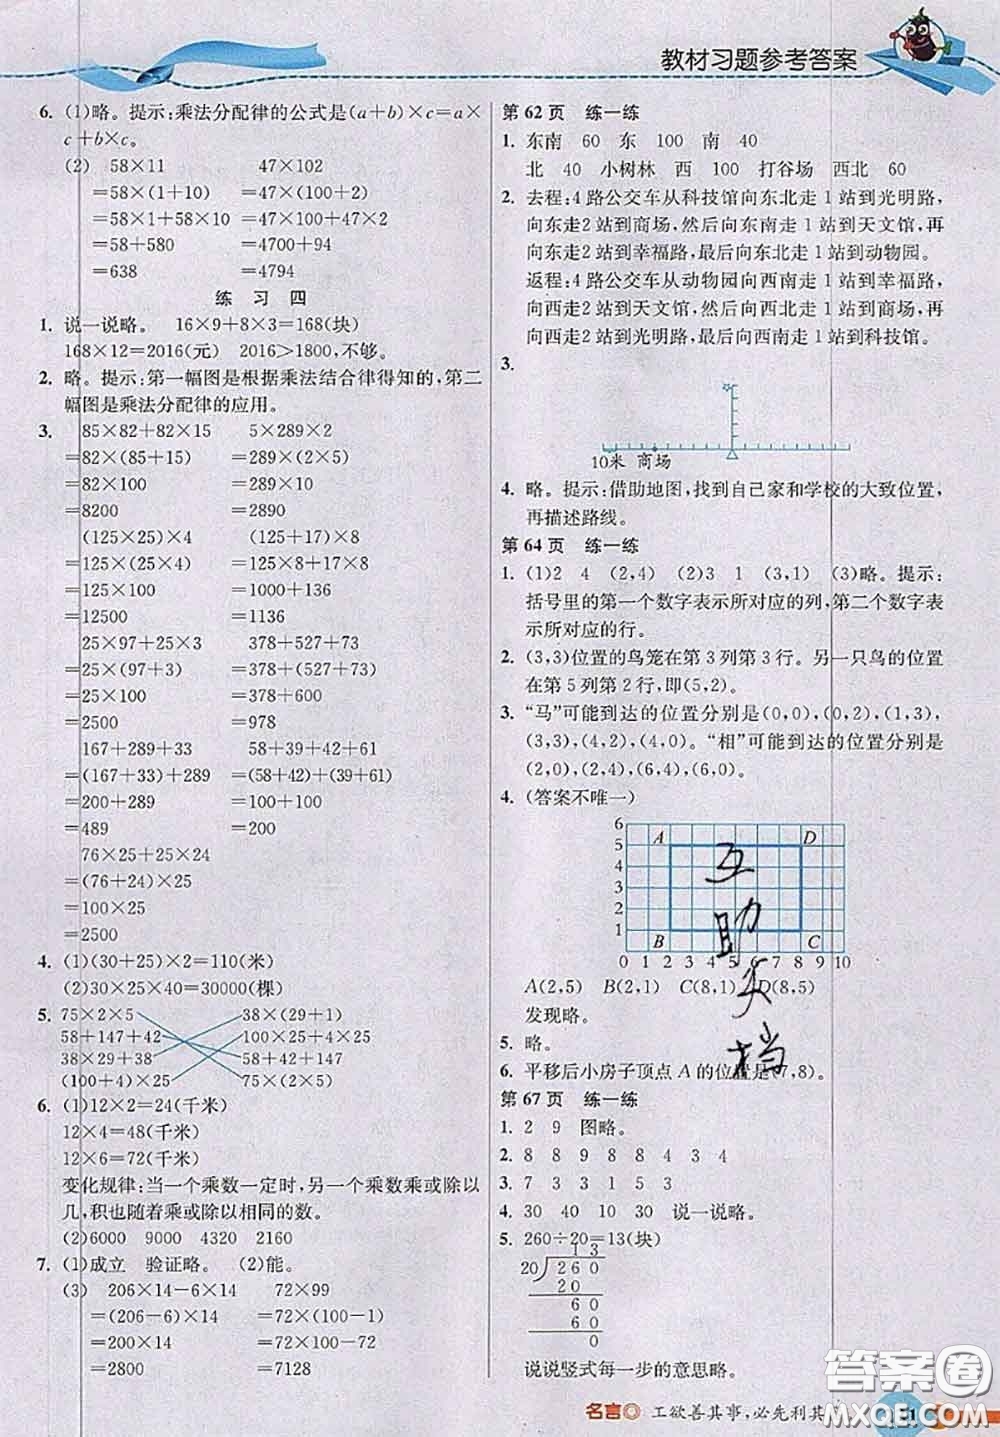 教材习题参考答案
6. (1)略。提示:乘法分配律的公式是(a+b)×c=a×
c+b×c。
(2) 58×11 47×102
=58×(1+10) =47×(100+2)
=58×1+58×10 =47×100+47×2
=58+580 =4700+94
=638 =4794
练 习 四
1. 说一说略。 16×9+8×3=168(块)
168×12=2016(元) 2016>1800,不够。
2. 略。提示:第一幅图是根据乘法结合律得知的,第二
幅图是乘法分配律的应用。
3. 85×82+82×15 5×289×2
=82×(85+15) =289×(2×5)
=82×100 =289×10
=8200 =2890
(125×25)×4 (125+17)×8
=125×(25×4) =125×8+17×8
=125×100 =1000+136
=12500 =1136
25×97+25×3 378+527+73
=25×(97+3) =378+(527+73)
=25×100 =378+600
=2500 =978
167+289+33 58+39+42+61
=(167+33)+289 =(58+42)+(39+61)
=200+289 =100+100
=489 =200
76×25+25×24
=(76+24)×25
=100×25
=2500
4. (1)(30+25)×2=110(米)
(2)30×25×40=30000(棵)
5. 75×2×5 38×(29+1)
58+147+42 100×25+4×25
38×29+38 58+42+147
(100+4)×25 75×(2×5)
6. (1)12×2=24(千米)
12×4=48(千米)
12×6=72(千米)
变化规律:当一个乘数一定时,另一个乘数乘或除以
几,积也随着乘或除以相同的数。
(2)6000 9000 4320 2160
7. (1)成立 验证略。 (2)能。
(3) 206×14-6×14 72×99
=(206-6)×14 =72×(100-1)
=200×14 =72×100-72×1
=2800 =7128
第 62 页 练一练
1. 东南 60 东 100 南 40
北 40 小树林 西 100 打谷场 西北 60
2. 去程:4 路公交车从科技馆向东北走 1 站到光明路,
向东走2 站到商场,然后向东南走 1 站到天文馆,再
向东走2 站到幸福路,最后向东北走 1 站到动物园。
返程:4 路公交车从动物园向西南走 1 站到幸福路,
向西走2 站到天文馆,然后向西北走 1 站到商场,再
向西走2 站到光明路,最后向西南走 1 站到科技馆。
3.
10米 商场
4. 略。提示:借助地图,找到自己家和学校的大致位置,
再描述路线。
第 64 页 练一练
1. (1)2 4 (2,4) (2)3 1 (3,1) (3)略。提示:
括号里的第一个数字表示所对应的列,第二个数字表
示所对应的行。
2. (3,3)位置的鸟笼在第 3 列第 3 行。另一只鸟的位置
在第 5 列第 2 行,即(5,2)。
3. “马”可能到达的位置分别是(0,0),(0,2),(1,3),
(3,3),(4,2),(4,0)。“相”可能到达的位置分别是
(2,0),(2,4),(6,4),(6,0)。
4. (答案不唯一)
6
5 A D
4
3
2
1 B C
0 1 2 3 4 5 6 7 8 9 10
A(2,5) B(2,1) C(8,1) D(8,5)
发现略。
5. 略。
6. 平移后小房子顶点 A 的位置是(7,8)。
第 67 页 练一练
1. 2 9 图略。
2. 8 8 9 8 8 4 3 4
3. 7 3 3 1 5 3
4. 30 40 10 30 说一说略。
5. 260÷20=13(块)
1 3
20 2 6 0
2 0
6 0
6 0
0
说说竖式每一步的意思略。
互助文档
名言 工欲善其事,必先利其
答案圈
MXQE.COM